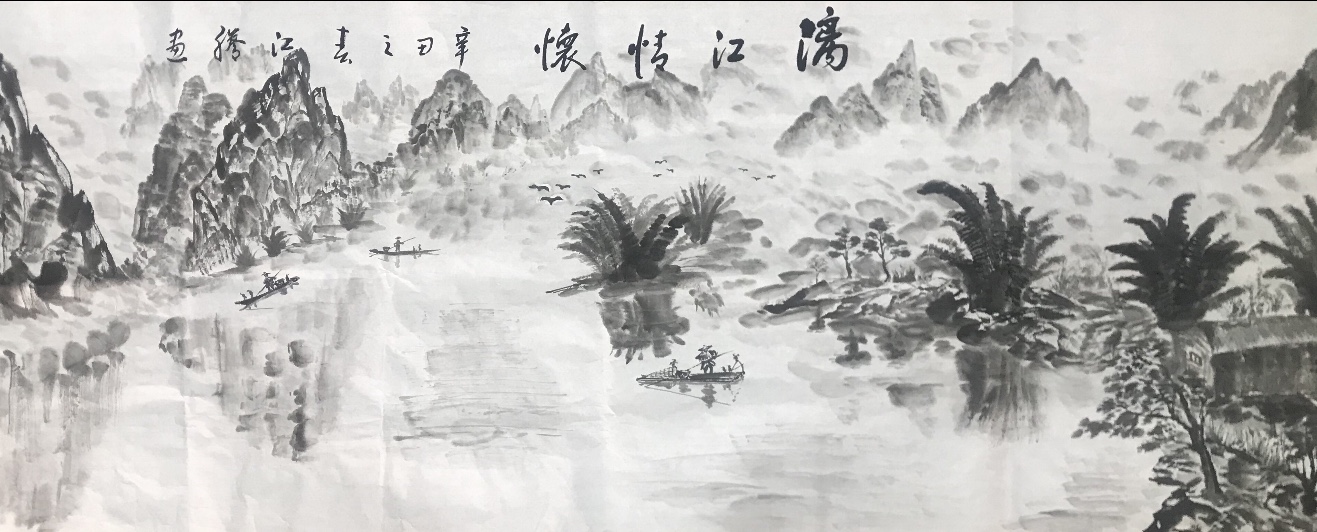 漓江情懷
辛丑之春江騰画